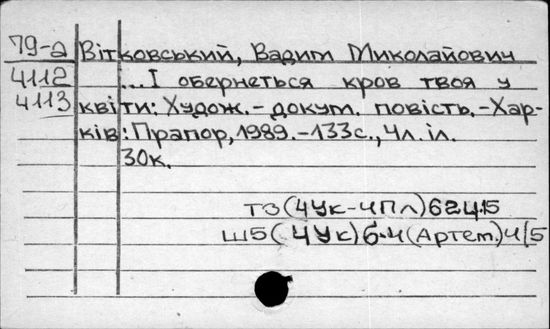 79-а Вітковський, Вадим Миколайович
4112 ...І обернеться кров твоя у
4113 квіти: Худож.- докум. повість.-Хар-
ків: Прапор, 1989.-133с., 4л.іл.
30к.
ТЗ(4Ук-4Пл)624.15
Ш5(4Ук)6-4(Артем.)4/5